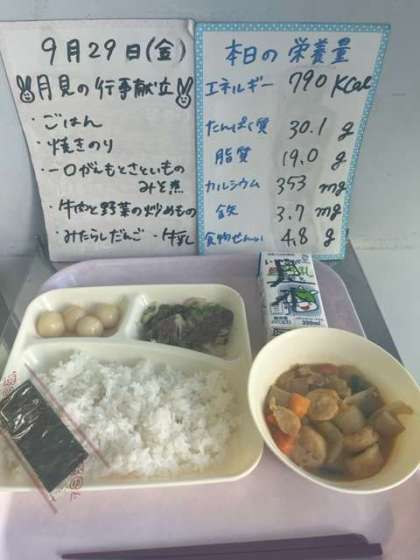 9月29日(金)
月見の行事献立
・ごはん
・焼きのり
・一口がんもとさといもの
みそ煮
・牛肉と野菜の炒めもの
・みたらしだんご ・牛乳
本日の栄養量
エネルギー 790 Kcal
たんぱく質 30.1 g
脂質 19.0 g
カルシウム 353 mg
鉄 3.7 mg
食物せんい 4.8 g